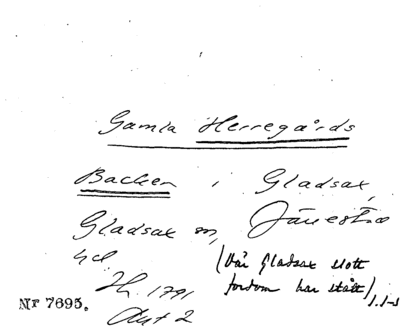 Gamla Herregårds
Backen i Gladsax,
Gladsax sn,
hd
(där Gladsax slott
fordom har stått)
H. 1791
Akt 2
Nr 7695.